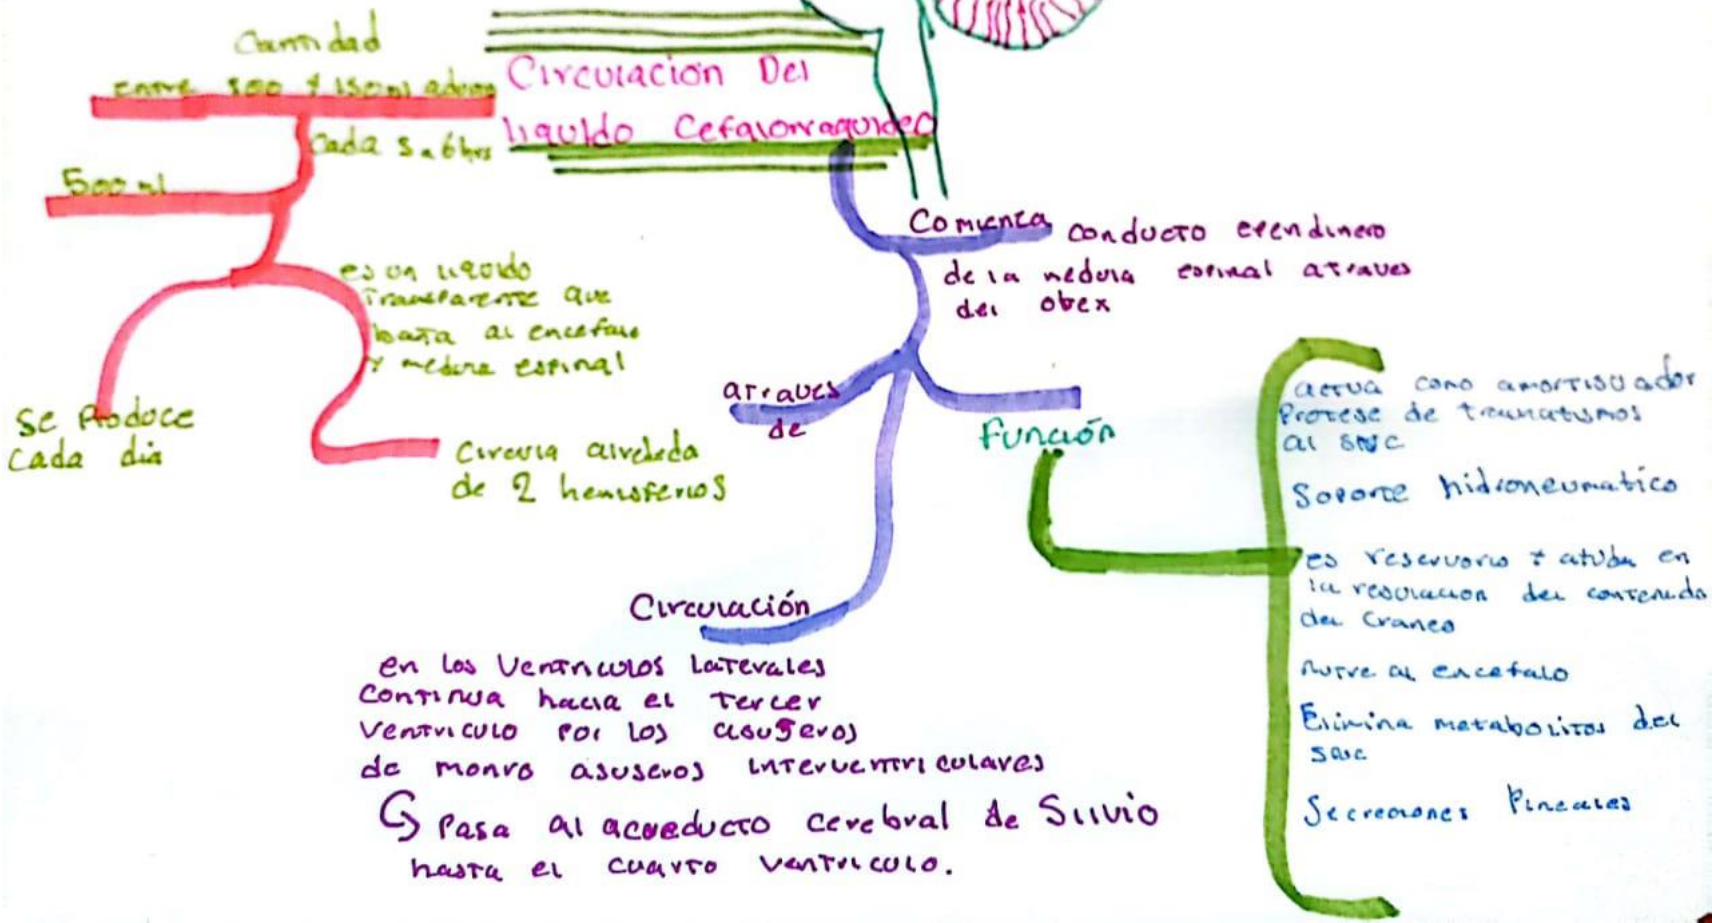 Circulacion Del
liquido Cefalorraquideo
Cantidad
entre 100 y 150 ml
Cada 5 a 6 hrs
500 ml
es un liquido
Transparente que
baña al encefalo
y medula espinal
Se Produce
Cada dia
Circula
de 2 hemisferios
Comienza conducto
de la medula espinal atraves
del obex
atraves
de
Función
actua como
Protege de traumatismos
al SNC
Soporte hidroneumatico
es reservorio
la regulacion del contenido
del craneo
nutre al encefalo
Elimina metabolitos del
SNC
Secreciones Pineales
Circulación
en los Ventriculos Laterales
Continua hacia el Tercer
Ventriculo por los
de monro interventriculares
Pasa al acueducto cerebral de Silvio
hasta el cuarto ventriculo.